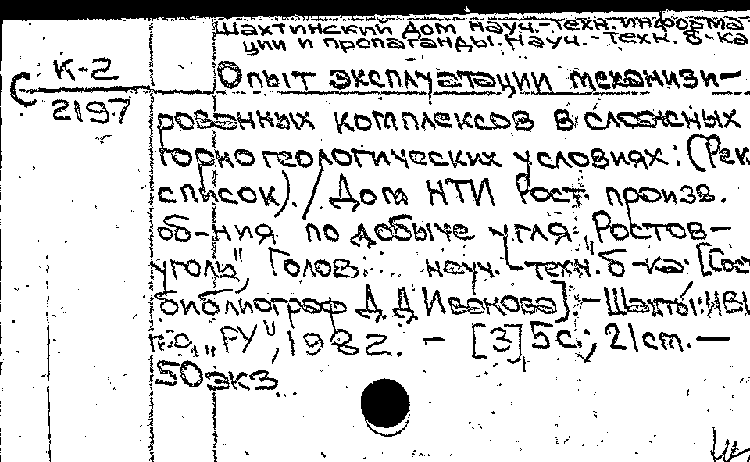 Шахтинский Дом науч.-техн. информа-
ции и пропаганды. Науч.-техн. б-ка
К-2
2197
Опыт эксплуатации механизи-
рованных комплексов в сложных
горно геологических условиях: (Рек
список). / Дом НТИ Рост. произв.
об-ния по добыче угля „Ростов-
уголь", Голов. науч.-техн. б-ка. [Сост
библиограф Д. Д. Иванова]. – Шахты:
„РУ", 1982. – [3] 5 с.; 21 cm. –
50 экз